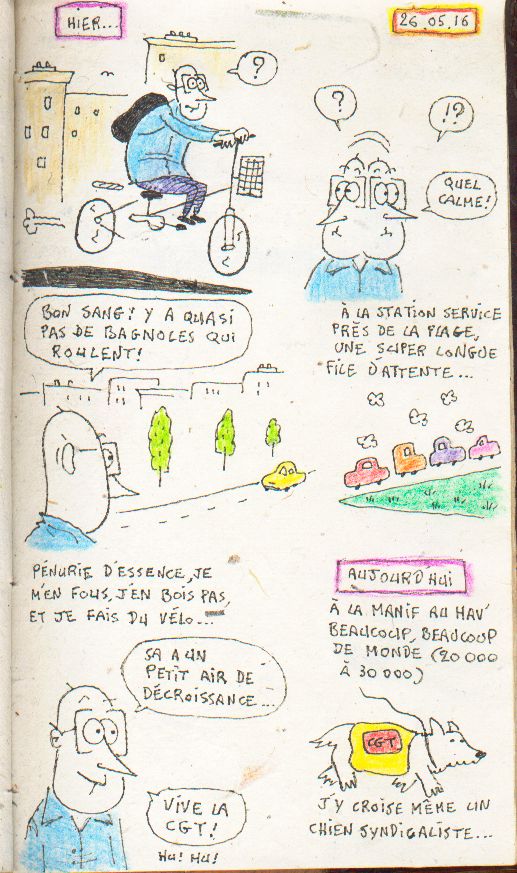 HIER...
26.05.16
?
?
!?
QUEL
CALME!
BON SANG! Y A QUASI
PAS DE BAGNOLES QUI
ROULENT!
À LA STATION SERVICE
PRÈS DE LA PLAGE,
UNE SUPER LONGUE
FILE D'ATTENTE...
PÉNURIE D'ESSENCE, JE
M'EN FOUS, J'EN BOIS PAS,
ET JE FAIS DU VÉLO...
SA A UN
PETIT AIR DE
DÉCROISSANCE...
VIVE LA
CGT!
HU! HU!
AUJOURD'HUI
À LA MANIF AU HAV'
BEAUCOUP, BEAUCOUP
DE MONDE (20 000
À 30 000)
CGT
J'Y CROISE MÊME UN
CHIEN SYNDICALISTE...